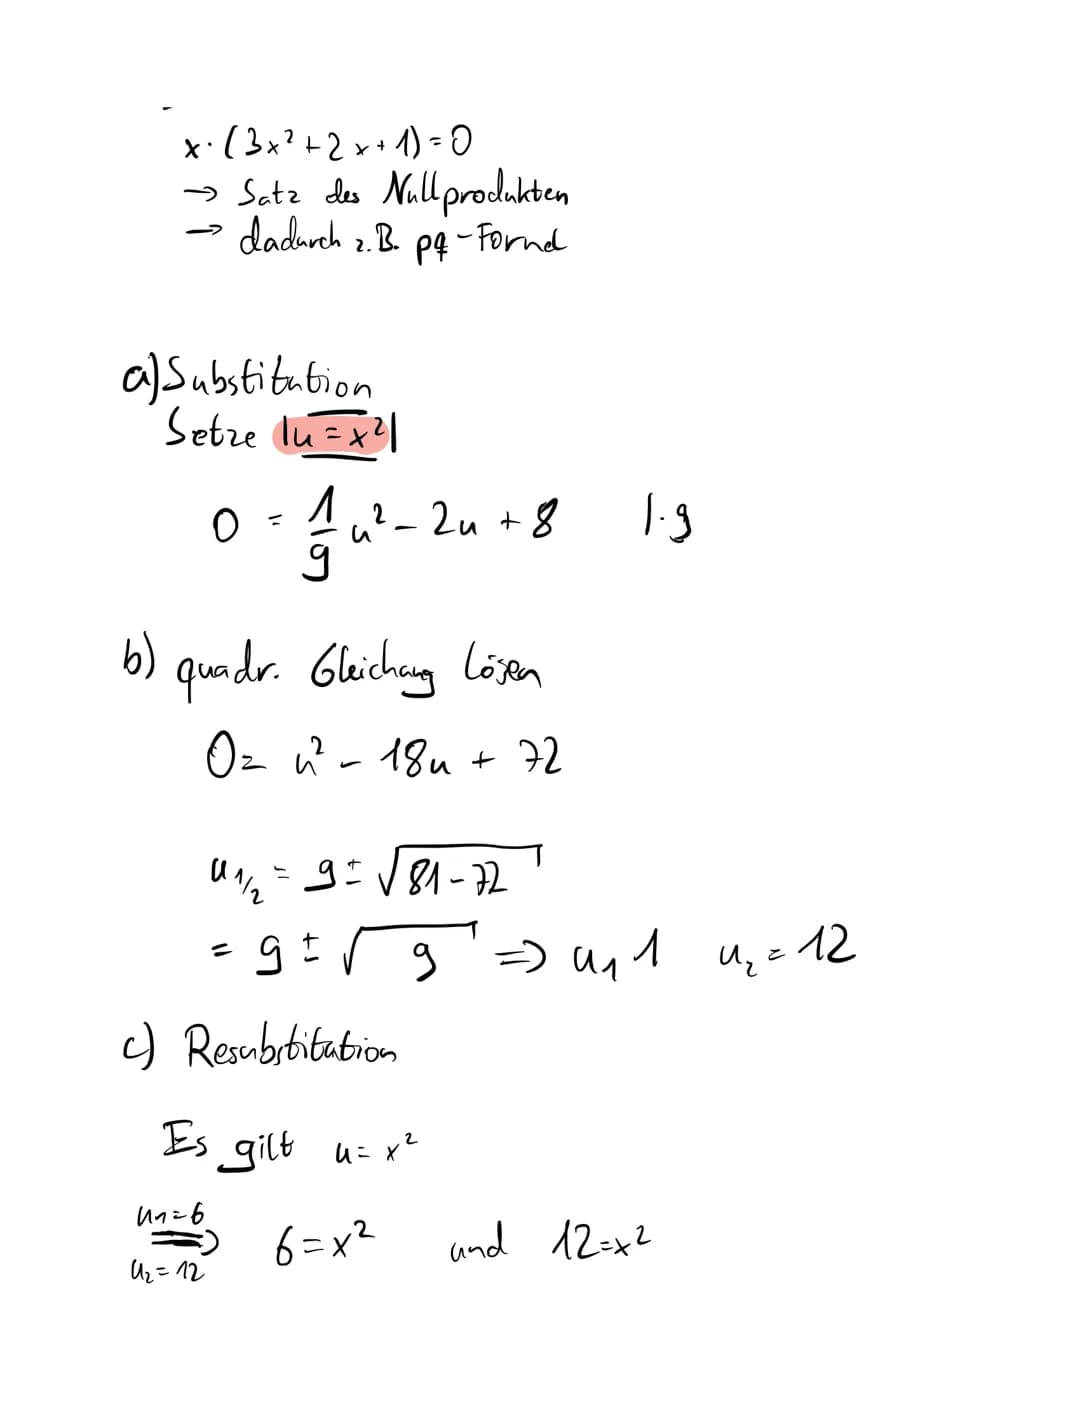 x·(3x²+2x+1)=0
→ Satz des Nullprodukten
→ dadurch z.B. pq-Formel
a) Substitution
Setze |u=x²|
0 = 1/9 u² - 2u + 8 |·9
b) quadr. Gleichung lösen
0= u² - 18u + 72
u1/2 = 9 ± √81-72
= 9 ± √9 => u1 1 u2 = 12
c) Resubstitution
Es gilt u= x²
u1=6
=> 6=x² und 12=x²
u2=12